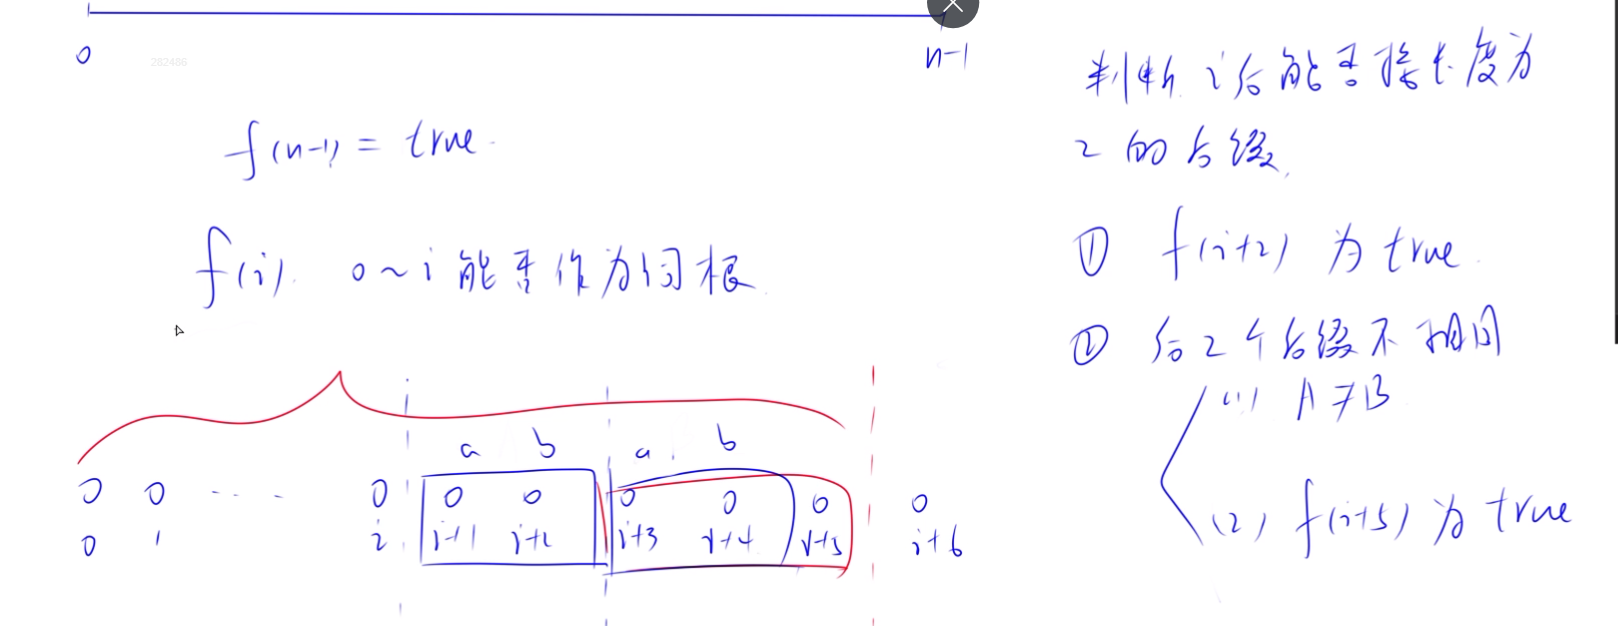 0 n-1
282486
f(n-1) = true.
f(i). 0~i 能否作为词根
a b a b
0 0 .... 0 0 0 0 0 0 0
0 1 i i+1 i+2 i+3 i+4 i+5 i+6
判断 i 后能否接长度为
2 的后缀
① f(i+2) 为 true.
② 后 2 个后缀不相同
(1) A≠B
(2) f(i+5) 为 true